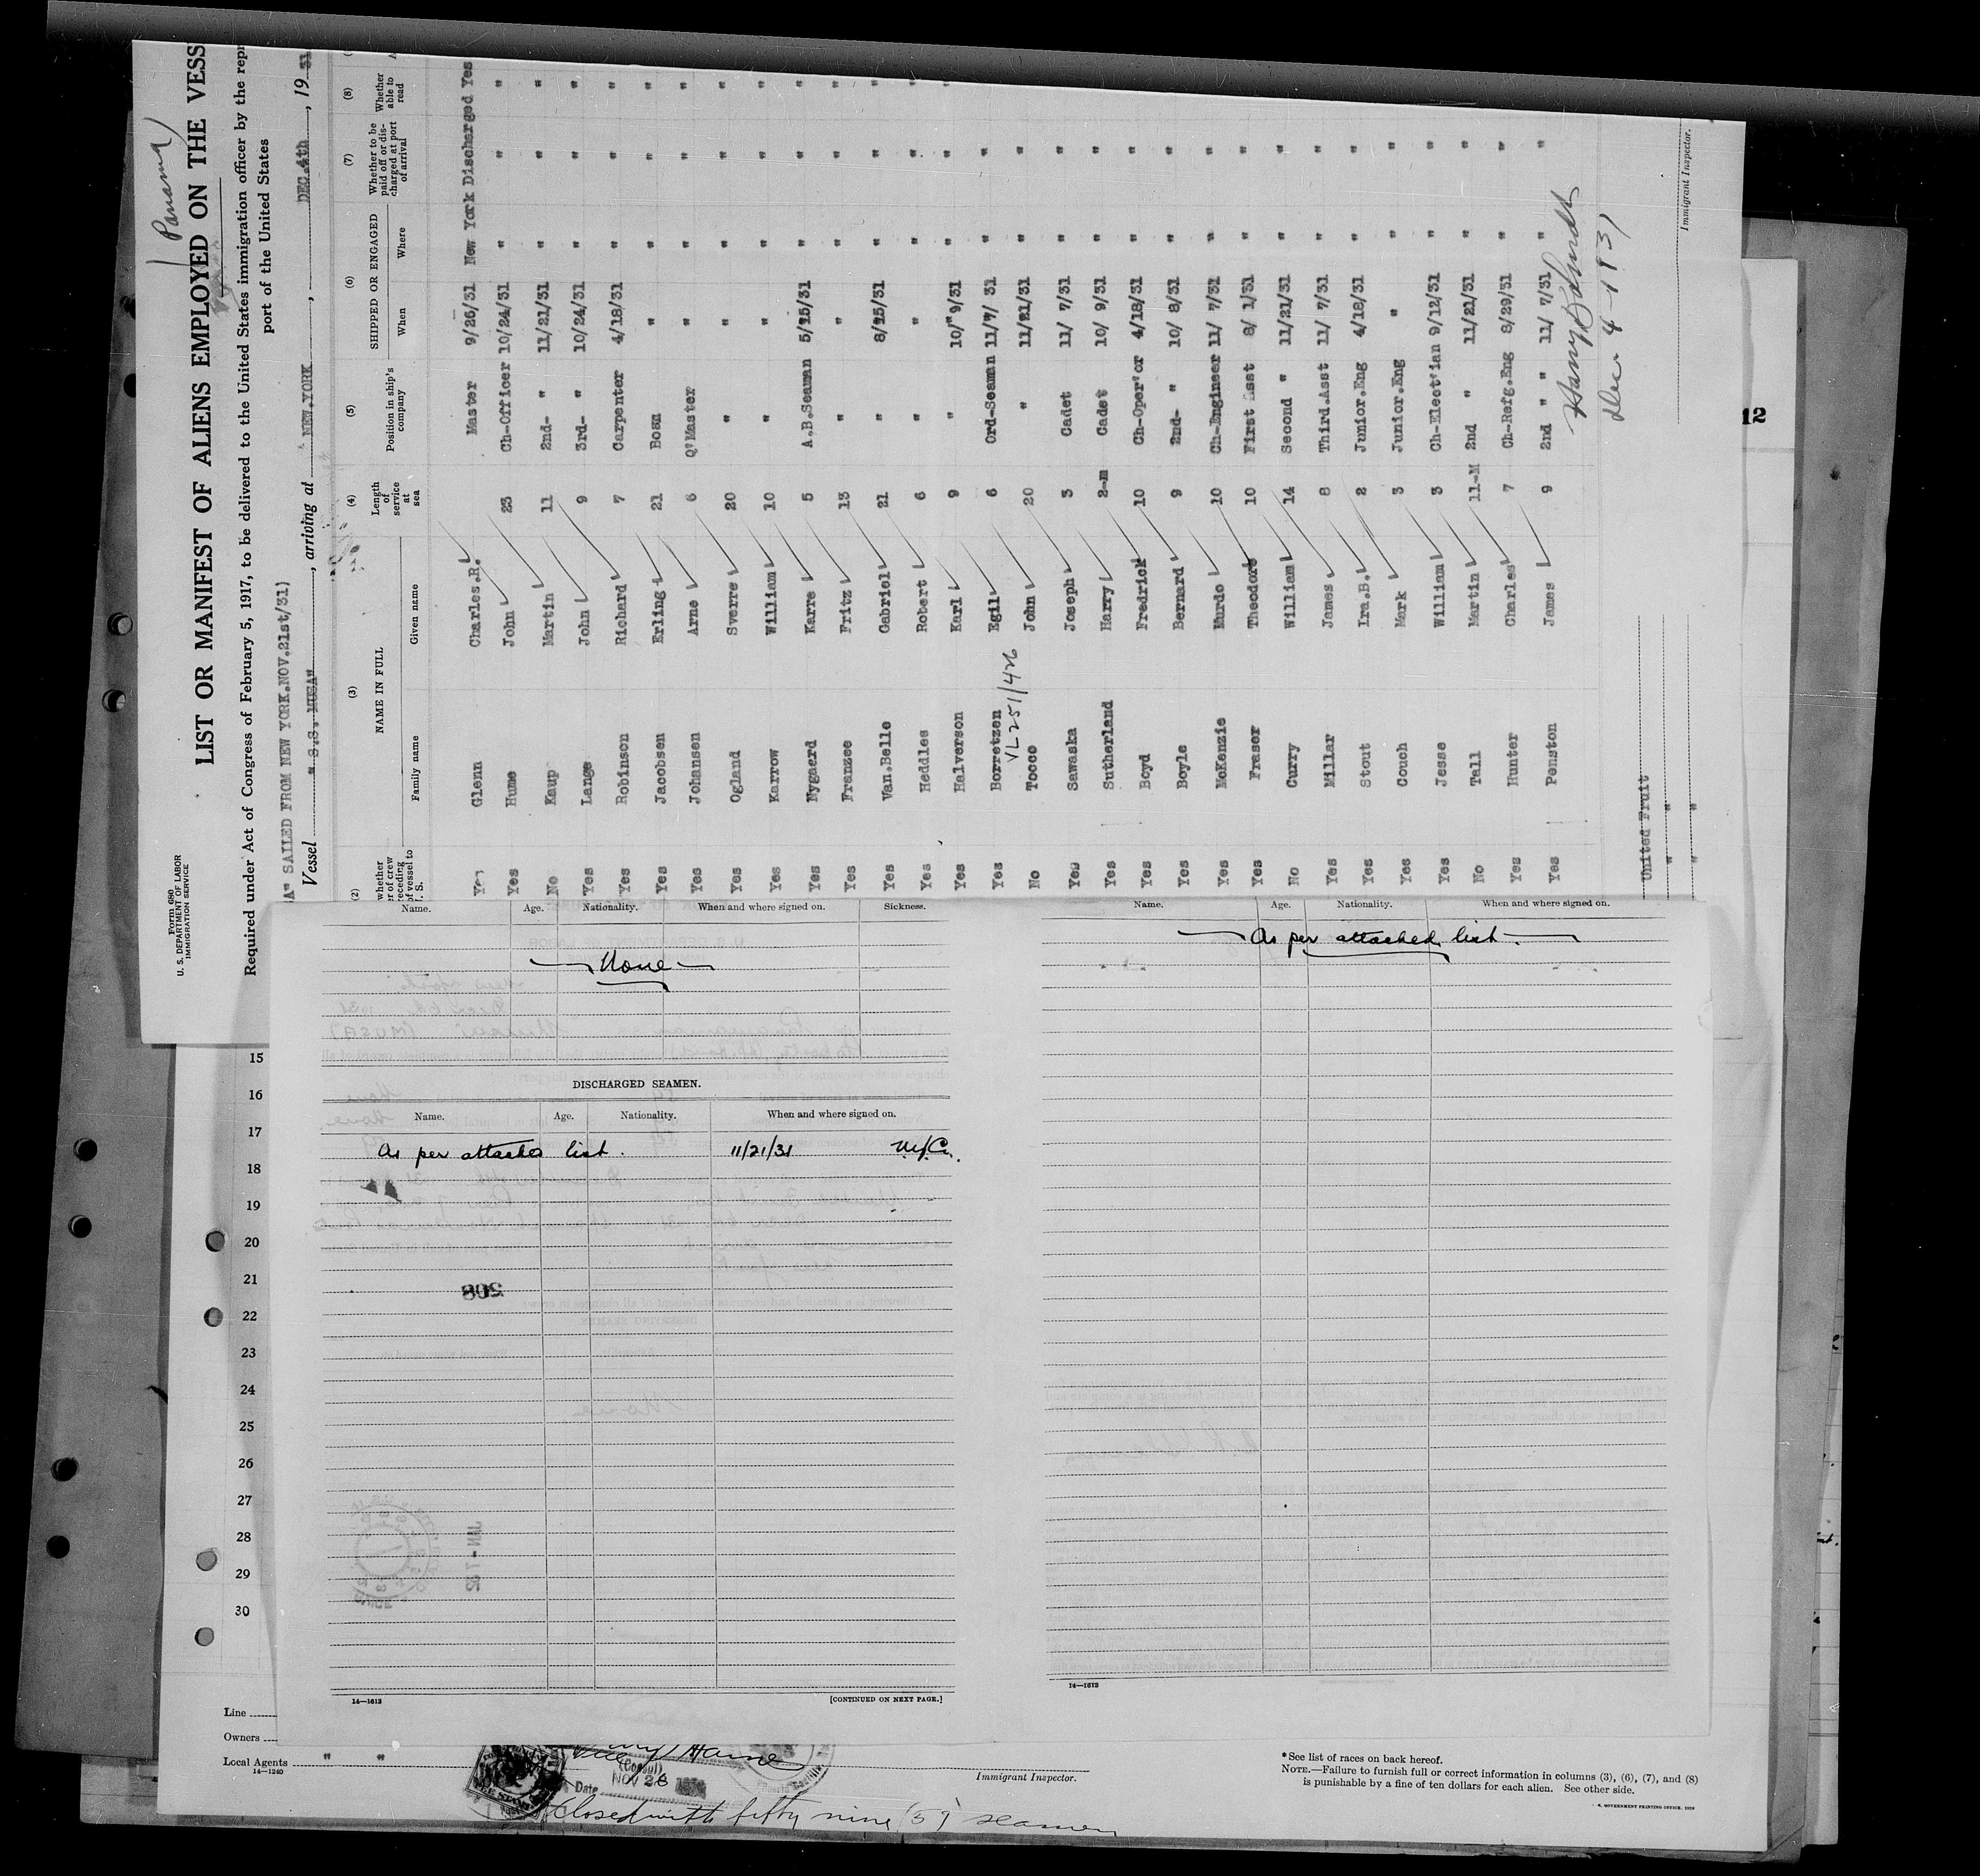 (Panama)
LIST OR MANIFEST OF ALIENS EMPLOYED ON THE VESS
Form 680
U. S. DEPARTMENT OF LABOR
IMMIGRATION SERVICE
Required under Act of Congress of February 5, 1917, to be delivered to the United States immigration officer by the repr
port of the United States
A" SAILED FROM NEW YORK.NOV.21st/31)
Vessel " S.S. MUSA" , arriving at NEW.YORK , DEC.4th , 19 31
(2) (3) (4) (5) (6) (7) (8)
whether er of crew receding of vessel to . S. NAME IN FULL Family name Given name Length of service at sea Position in ship's company SHIPPED OR ENGAGED When Where Whether to be paid off or discharged at port of arrival Whether able to read
Yes Glenn Charles.R. Master 9/26/31 New York Discharged Yes
Yes Hume John 23 Ch-Officer 10/24/31 " " "
No Kaup Martin 11 2nd- " 11/21/31 " " "
Yes Lange John 9 3rd- " 10/24/31 " " "
Yes Robinson Richard 7 Carpenter 4/18/31 " " "
Yes Jacobsen Erling 21 Bosn " " " "
Yes Johansen Arne 6 Q'Master " " " "
Yes Ogland Sverre 20 " " " " "
Yes Karrow William 10 " " " " "
Yes Nygaerd Karre 5 A.B.Seaman 5/15/31 " " "
Yes Franzee Fritz 13 " " " " "
Yes Van.Belle Gabriel 21 " 8/15/31 " " "
Yes Heddles Robert 6 " " " " "
Yes Halverson Karl 9 " 10/ 9/31 " " "
Yes Borretzen Egil 6 Ord-Seaman 11/7/ 31 " "
VL251/426
No Tocco John 20 " 11/21/31 " "
Yes Sawaska Joseph 3 Cadet 11/ 7/31 " "
Yes Sutherland Harry 2-m Cadet 10/ 9/31 " "
Yes Boyd Fredrick 10 Ch-Oper'or 4/18/31 " "
Yes Boyle Bernard 9 2nd- " 10/ 8/31 " "
Yes McKenzie Murdo 10 Ch-Engineer 11/ 7/31 " "
Yes Fraser Theodore 10 First Asst 8/ 1/31 " "
No Curry William 14 Second " 11/21/31 " "
Yes Millar James 8 Third.Asst 11/ 7/31 " "
Yes Stout Ira.B. 2 Junior.Eng 4/18/31 " "
Yes Couch Mark 3 Junior.Eng " " "
Yes Jesse William 3 Ch-Elect'ian 9/12/31 " "
No Tall Martin 11-M 2nd " 11/21/31 " "
Yes Hunter Charles 7 Ch-Refg.Eng 8/29/31 " "
Yes Penston James 9 2nd " " 11/ 7/31 " "
Dec 4-1931
United Fruit
" "
" "
Immigrant Inspector.
12
Name. Age. Nationality. When and where signed on. Sickness.
None
DISCHARGED SEAMEN.
Name. Age. Nationality. When and where signed on.
As per attached list. 11/21/31 N.Y.C.
508
14—1613 [CONTINUED ON NEXT PAGE.]
Name. Age. Nationality. When and where signed on.
As per attached list.
14—1613
15
16
17
18
19
20
21
22
23
24
25
26
27
28
29
30
Line
Owners
Local Agents " "
14—1240
(Consul)
Date NOV 28
Immigrant Inspector.
Closed with fifty nine (59 seamen
*See list of races on back hereof.
NOTE.—Failure to furnish full or correct information in columns (3), (6), (7), and (8)
is punishable by a fine of ten dollars for each alien. See other side.